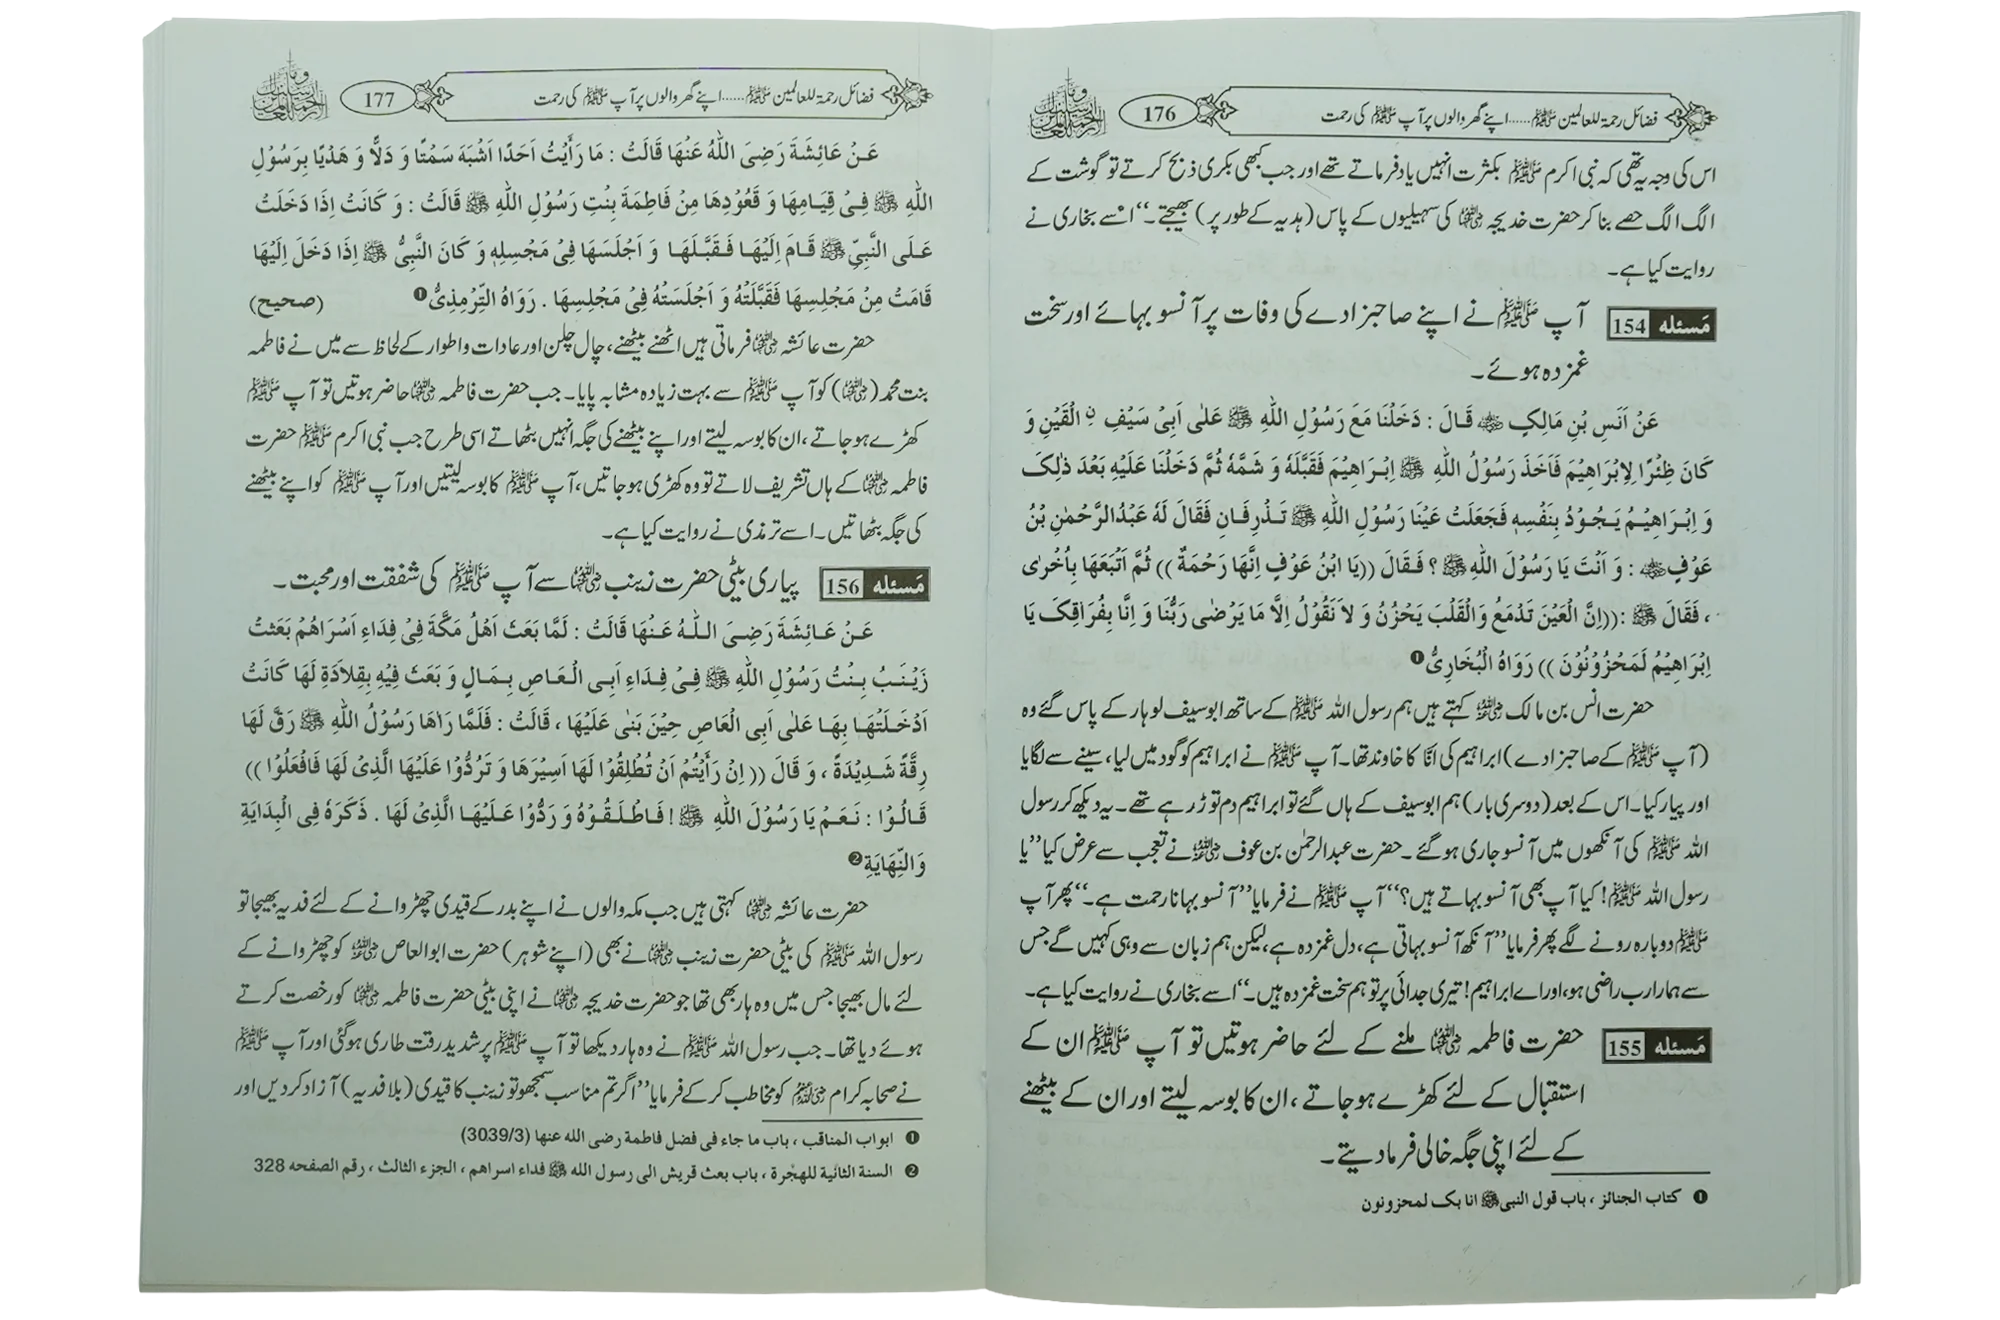 فضائل رحمۃ للعالمین ﷺ......اپنے گھر والوں پر آپ ﷺ کی رحمت
176
اس کی وجہ یہ تھی کہ نبی اکرم ﷺ بکثرت انہیں یاد فرماتے تھے اور جب کبھی بکری ذبح کرتے تو گوشت کے
الگ الگ حصے بنا کر حضرت خدیجہ رضی اللہ عنہا کی سہیلیوں کے پاس (ہدیہ کے طور پر) بھیجتے۔‘‘ اسے بخاری نے
روایت کیا ہے۔
مَسئله 154 آپ ﷺ نے اپنے صاحبزادے کی وفات پر آنسو بہائے اور سخت
غمزدہ ہوئے۔
عَنْ اَنَسِ بْنِ مَالِكٍ رضی اللہ عنہ قَالَ : دَخَلْنَا مَعَ رَسُوْلِ اللّٰهِ ﷺ عَلٰى اَبِىْ سَيْفِ نِ الْقَيْنِ وَ
كَانَ ظِئْرًا لِاِبْرَاهِيْمَ فَاَخَذَ رَسُوْلُ اللّٰهِ ﷺ اِبْرَاهِيْمَ فَقَبَّلَهٗ وَ شَمَّهٗ ثُمَّ دَخَلْنَا عَلَيْهِ بَعْدَ ذٰلِكَ
وَ اِبْرَاهِيْمُ يَجُوْدُ بِنَفْسِهٖ فَجَعَلَتْ عَيْنَا رَسُوْلِ اللّٰهِ ﷺ تَذْرِفَانِ فَقَالَ لَهٗ عَبْدُ الرَّحْمٰنِ بْنُ
عَوْفٍ رضی اللہ عنہ : وَ اَنْتَ يَا رَسُوْلَ اللّٰهِ ﷺ ؟ فَقَالَ ((يَا ابْنُ عَوْفٍ اِنَّهَا رَحْمَةٌ )) ثُمَّ اَتْبَعَهَا بِاُخْرٰى
، فَقَالَ ﷺ :((اِنَّ الْعَيْنَ تَدْمَعُ وَالْقَلْبَ يَحْزُنُ وَ لاَ نَقُوْلُ اِلَّا مَا يَرْضٰى رَبُّنَا وَ اِنَّا بِفُرَاقِكَ يَا
اِبْرَاهِيْمُ لَمَحْزُوْنُوْنَ )) رَوَاهُ الْبُخَارِىُّ ❶
حضرت انس بن مالک رضی اللہ عنہ کہتے ہیں ہم رسول اللہ ﷺ کے ساتھ ابو سیف لوہار کے پاس گئے وہ
(آپ ﷺ کے صاحبزادے) ابراہیم کی انّا کا خاوند تھا۔ آپ ﷺ نے ابراہیم کو گود میں لیا، سینے سے لگایا
اور پیار کیا۔ اس کے بعد (دوسری بار) ہم ابو سیف کے ہاں گئے تو ابراہیم دم توڑ رہے تھے۔ یہ دیکھ کر رسول
اللہ ﷺ کی آنکھوں میں آنسو جاری ہو گئے۔ حضرت عبدالرحمٰن بن عوف رضی اللہ عنہ نے تعجب سے عرض کیا ’’یا
رسول اللہ ﷺ! کیا آپ بھی آنسو بہاتے ہیں؟‘‘ آپ ﷺ نے فرمایا ’’آنسو بہانا رحمت ہے۔‘‘ پھر آپ
ﷺ دوبارہ رونے لگے پھر فرمایا ’’آنکھ آنسو بہاتی ہے، دل غمزدہ ہے، لیکن ہم زبان سے وہی کہیں گے جس
سے ہمارا رب راضی ہو، اور اے ابراہیم! تیری جدائی پر تو ہم سخت غمزدہ ہیں۔‘‘ اسے بخاری نے روایت کیا ہے۔
مَسئله 155 حضرت فاطمہ رضی اللہ عنہا ملنے کے لئے حاضر ہوتیں تو آپ ﷺ ان کے
استقبال کے لئے کھڑے ہو جاتے، ان کا بوسہ لیتے اور ان کے بیٹھنے
کے لئے اپنی جگہ خالی فرما دیتے۔
❶ كتاب الجنائز ، باب قول النبى ﷺ انا بك لمحزونون
فضائل رحمۃ للعالمین ﷺ......اپنے گھر والوں پر آپ ﷺ کی رحمت
177
عَنْ عَائِشَةَ رَضِىَ اللّٰهُ عَنْهَا قَالَتْ : مَا رَأَيْتُ اَحَدًا اَشْبَهَ سَمْتًا وَ دَلًّا وَ هَدْيًا بِرَسُوْلِ
اللّٰهِ ﷺ فِىْ قِيَامِهَا وَ قَعُوْدِهَا مِنْ فَاطِمَةَ بِنْتِ رَسُوْلِ اللّٰهِ ﷺ قَالَتْ : وَ كَانَتْ اِذَا دَخَلَتْ
عَلَى النَّبِىِّ ﷺ قَامَ اِلَيْهَا فَقَبَّلَهَا وَ اَجْلَسَهَا فِىْ مَجْسِلِهٖ وَ كَانَ النَّبِىُّ ﷺ اِذَا دَخَلَ اِلَيْهَا
قَامَتْ مِنْ مَجْلِسِهَا فَقَبَّلَتْهُ وَ اَجْلَسَتْهُ فِىْ مَجْلِسِهَا . رَوَاهُ التِّرْمِذِىُّ ❶ (صحيح)
حضرت عائشہ رضی اللہ عنہا فرماتی ہیں اٹھنے بیٹھنے، چال چلن اور عادات و اطوار کے لحاظ سے میں نے فاطمہ
بنت محمد (رضی اللہ عنہا) کو آپ ﷺ سے بہت زیادہ مشابہ پایا۔ جب حضرت فاطمہ رضی اللہ عنہا حاضر ہوتیں تو آپ ﷺ
کھڑے ہو جاتے، ان کا بوسہ لیتے اور اپنے بیٹھنے کی جگہ انہیں بٹھاتے اسی طرح جب نبی اکرم ﷺ حضرت
فاطمہ رضی اللہ عنہا کے ہاں تشریف لاتے تو وہ کھڑی ہو جاتیں، آپ ﷺ کا بوسہ لیتیں اور آپ ﷺ کو اپنے بیٹھنے
کی جگہ بٹھاتیں۔ اسے ترمذی نے روایت کیا ہے۔
مَسئله 156 پیاری بیٹی حضرت زینب رضی اللہ عنہا سے آپ ﷺ کی شفقت اور محبت۔
عَنْ عَائِشَةَ رَضِىَ اللّٰهُ عَنْهَا قَالَتْ : لَمَّا بَعَثَ اَهْلُ مَكَّةَ فِىْ فِدَاءِ اَسْرَاهُمْ بَعَثَتْ
زَيْنَبُ بِنْتُ رَسُوْلِ اللّٰهِ ﷺ فِىْ فِدَاءِ اَبِى الْعَاصِ بِمَالٍ وَ بَعَثَ فِيْهِ بِقِلاَدَةِ لَهَا كَانَتْ
اَدْخَلَتْهَا بِهَا عَلٰى اَبِى الْعَاصِ حِيْنَ بَنٰى عَلَيْهَا ، قَالَتْ : فَلَمَّا رَاٰهَا رَسُوْلُ اللّٰهِ ﷺ رَقَّ لَهَا
رِقَّةً شَدِيْدَةً ، وَ قَالَ (( اِنْ رَأَيْتُمْ اَنْ تُطْلِقُوْا لَهَا اَسِيْرَهَا وَ تَرُدُّوْا عَلَيْهَا الَّذِىْ لَهَا فَافْعَلُوْا ))
قَالُوْا : نَعَمْ يَا رَسُوْلَ اللّٰهِ ﷺ ! فَاطْلَقُوْهُ وَ رَدُّوْا عَلَيْهَا الَّذِىْ لَهَا . ذَكَرَهٗ فِى الْبِدَايَةِ
وَالنِّهَايَةِ ❷
حضرت عائشہ رضی اللہ عنہا کہتی ہیں جب مکہ والوں نے اپنے بدر کے قیدی چھڑوانے کے لئے فدیہ بھیجا تو
رسول اللہ ﷺ کی بیٹی حضرت زینب رضی اللہ عنہا نے بھی (اپنے شوہر) حضرت ابوالعاص رضی اللہ عنہ کو چھڑوانے کے
لئے مال بھیجا جس میں وہ ہار بھی تھا جو حضرت خدیجہ رضی اللہ عنہا نے اپنی بیٹی حضرت فاطمہ رضی اللہ عنہا کو رخصت کرتے
ہوئے دیا تھا۔ جب رسول اللہ ﷺ نے وہ ہار دیکھا تو آپ ﷺ پر شدید رقت طاری ہو گئی اور آپ ﷺ
نے صحابہ کرام رضی اللہ عنہم کو مخاطب کر کے فرمایا ’’اگر تم مناسب سمجھو تو زینب کا قیدی (بلا فدیہ) آزاد کر دیں اور
❶ ابواب المناقب ، باب ما جاء فى فضل فاطمة رضى الله عنها (3039/3)
❷ السنة الثانية للهجرة ، باب بعث قريش الى رسول الله ﷺ فداء اسراهم ، الجزء الثالث ، رقم الصفحه 328